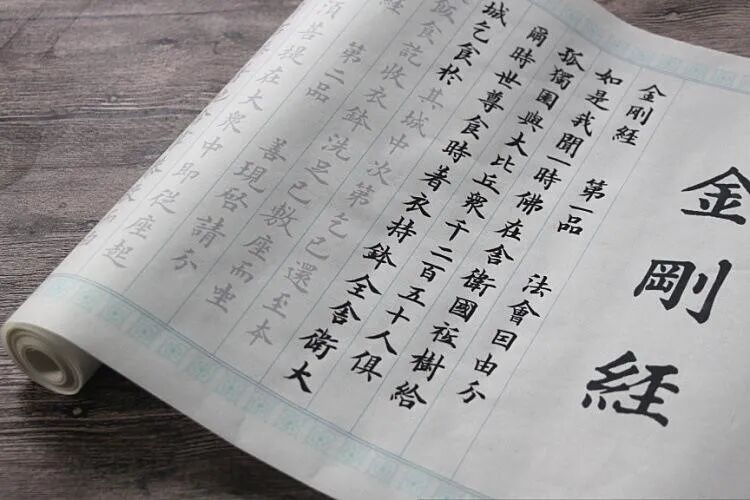 金剛經
金剛經 第一品 法會因由分
如是我聞一時佛在舍衛國祇樹給
孤獨園與大比丘眾千二百五十人俱
爾時世尊食時著衣持鉢全舍衛大
城乞食於其城中次第乞已還至本
飯食訖收衣鉢洗足已敷座而坐
經 第二品 善現啟請分
菩提在大眾中即從座起